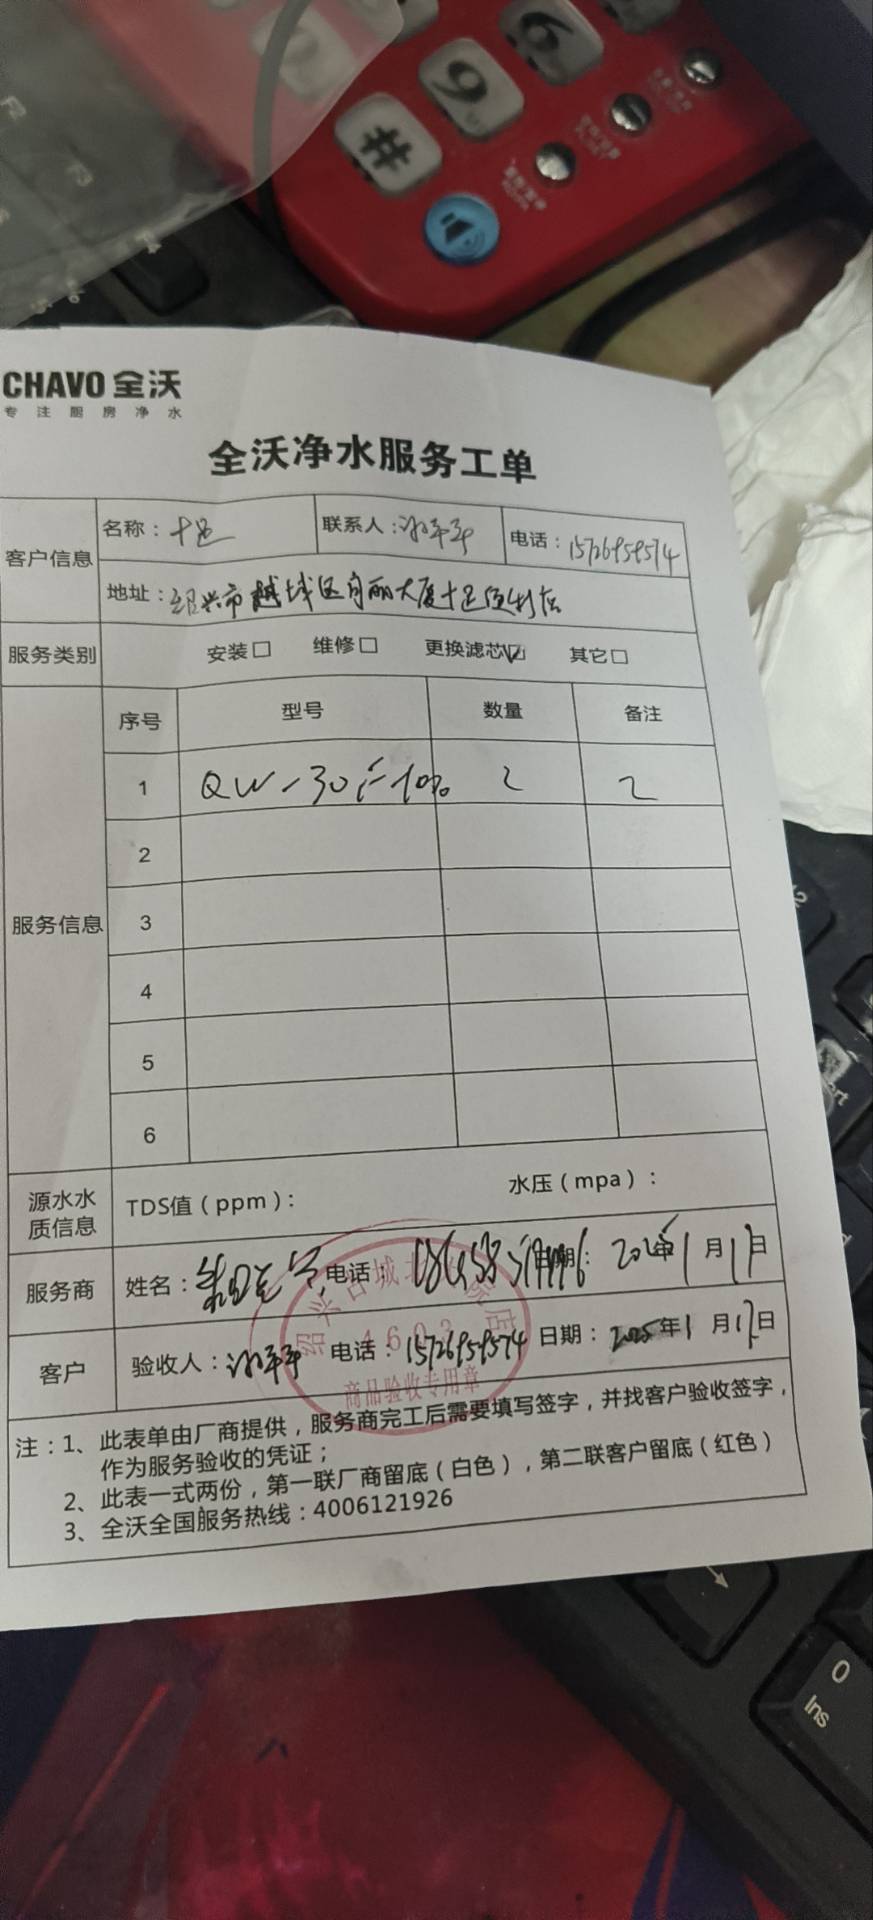 # 9 6
F2
F3
F4
CHAVO 全沃
专注厨房净水
全沃净水服务工单
客户信息 名称：十足 联系人： 电话：15726959574
地址：绍兴市越城区 大厦十足便利店
服务类别 安装□ 维修□ 更换滤芯☑ 其它□
序号 型号 数量 备注
1 QW-30 2 2
2
服务信息 3
4
5
6
源水水质信息 TDS值（ppm）： 水压（mpa）：
服务商 姓名： 电话： 日期：2025年1月17日
客户 验收人： 电话：15726959574 日期：2025年1月17日
4603
商品验收专用章
注：1、此表单由厂商提供，服务商完工后需要填写签字，并找客户验收签字，
作为服务验收的凭证；
2、此表一式两份，第一联厂商留底（白色），第二联客户留底（红色）
3、全沃全国服务热线：4006121926
0
Ins